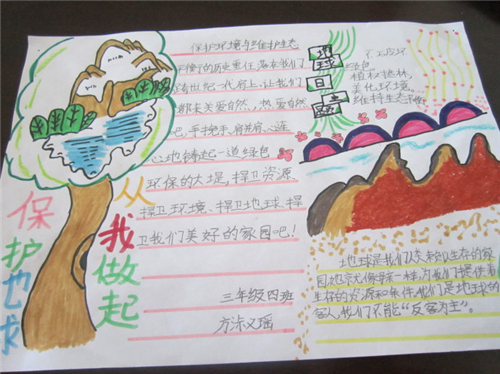 保护环境与维护生态
平衡的历史重任,落在我们
跨世纪一代肩上,让我们
都来关爱自然,热爱自然
吧,手挽手,肩并肩,心连
心地铸起一道绿色
环保的大堤,捍卫资源
捍卫环境、捍卫地球、捍
卫我们美好的家园吧!
三年级四班
保护地球
从我做起
地
球
日
植树造林
美化环境
维持生态平衡
地球是我们人类赖以生存的家
园她就像母亲一样,为我们提供着
生存的资源和条件。我们是地球的
客人,我们不能“反客为主”。